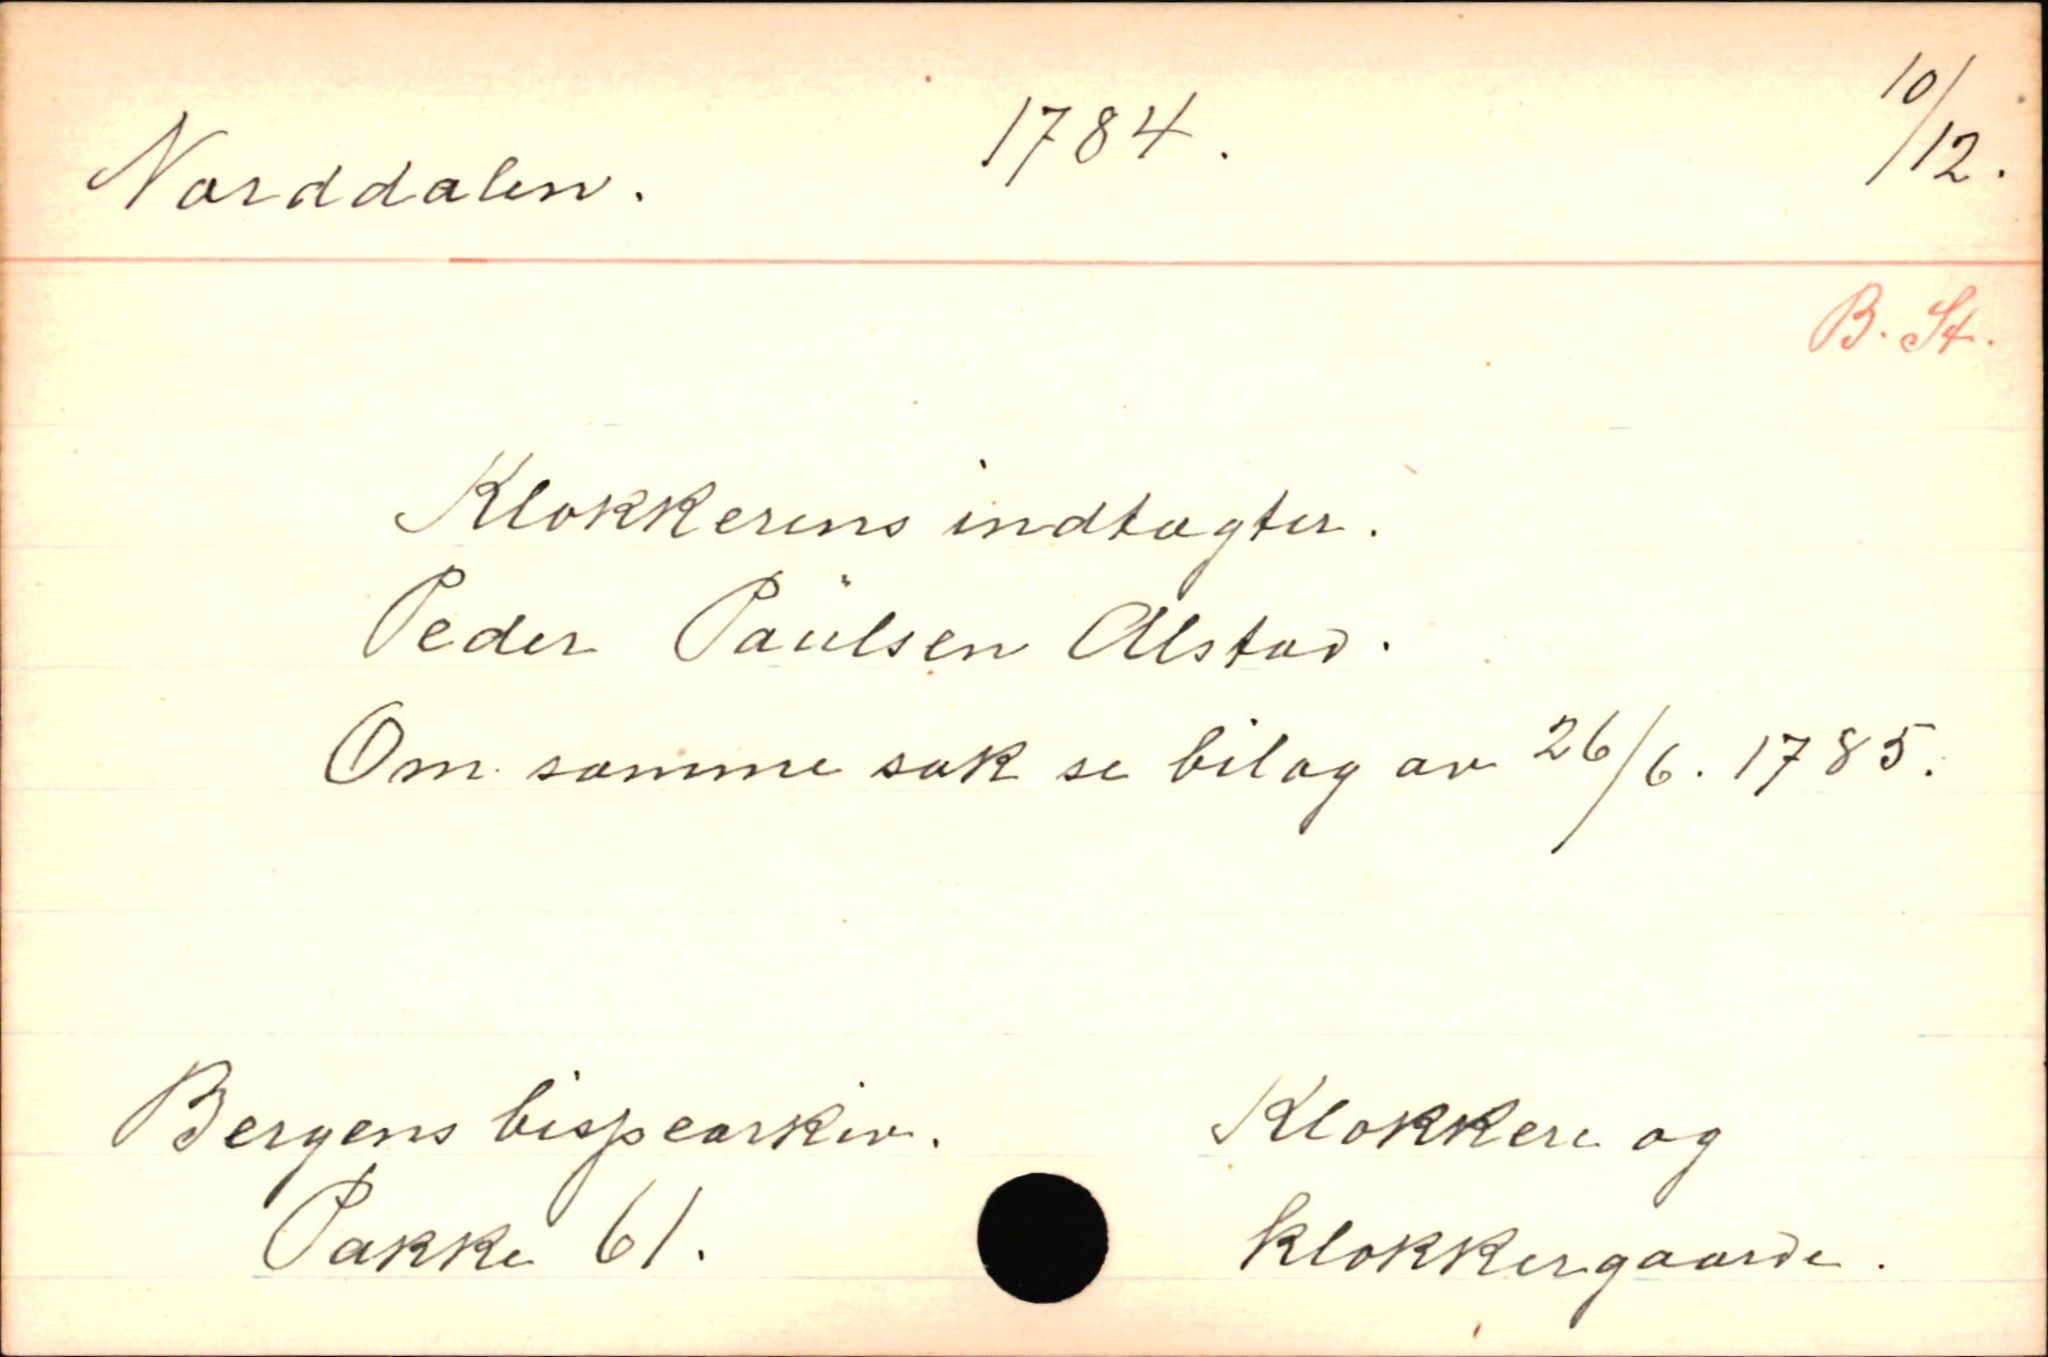 Norddalen. 1784. 10/12.
B. St.
Klokkerens indtægter.
Peder Paülsen Alstad.
Om samme sak se bilag av 26/6. 1785.
Bergens bispearkiv.
Pakke 61.
Klokkere og
klokkergaarde.